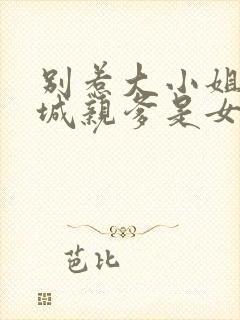 别惹大小姐
城亲爹是女
芭比